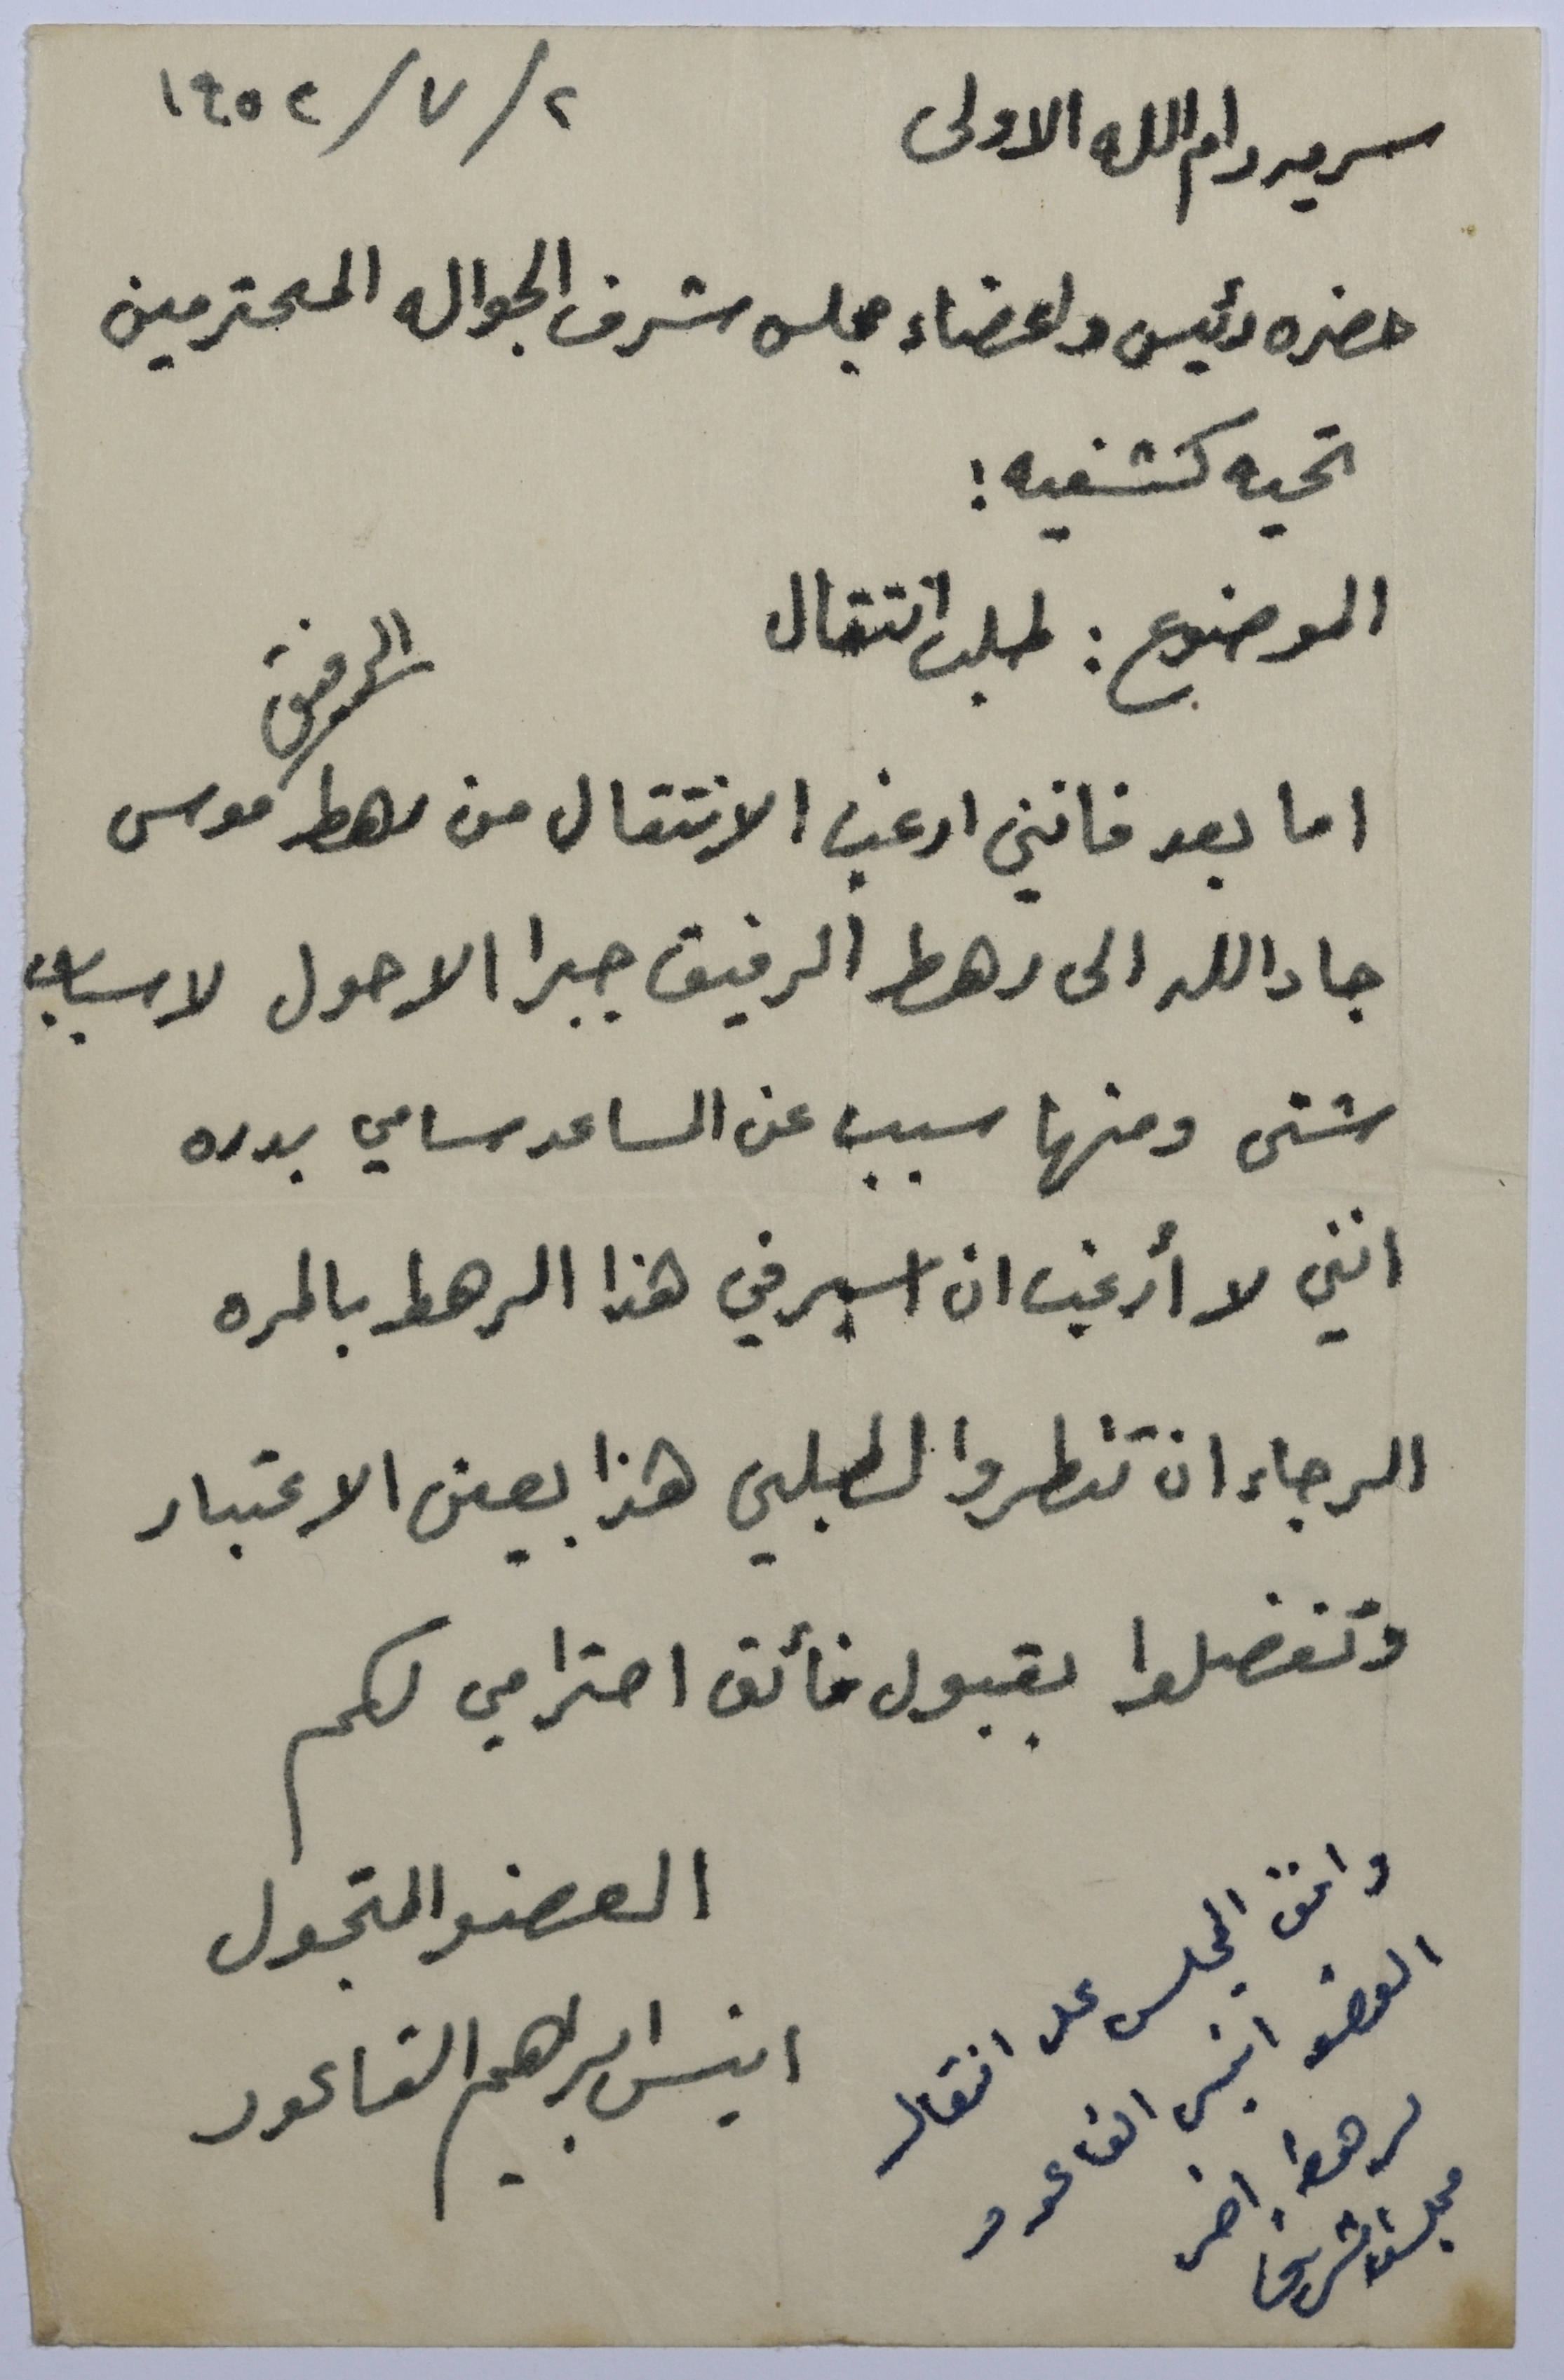 ٢/٧/١٩٥٢
سريه رام الله الاولى
حضره رئيس واعضاء مجلس شرف الجواله المحترمين
تحيه كشفيه:
الموضوع: طلب انتقال
اما بعد فانني ارغب الانتقال من رهط الرفيق موسى
جاد الله الى رهط الرفيق جبرا الاحول لاسباب
شتى ومنها سبب عن المساعد سامي بدره
انني لا أرغب ان اسير في هذا الرهط بالمره
الرجاء ان تنظروا لطلبي هذا بعين الاعتبار
وتفضلوا بقبول فائق احترامي لكم
العضو المتجول
انيس ابراهيم القاعود
وافق المجلس على انتقال
العضو انيس القاعود
لرهط اخر
مجلس